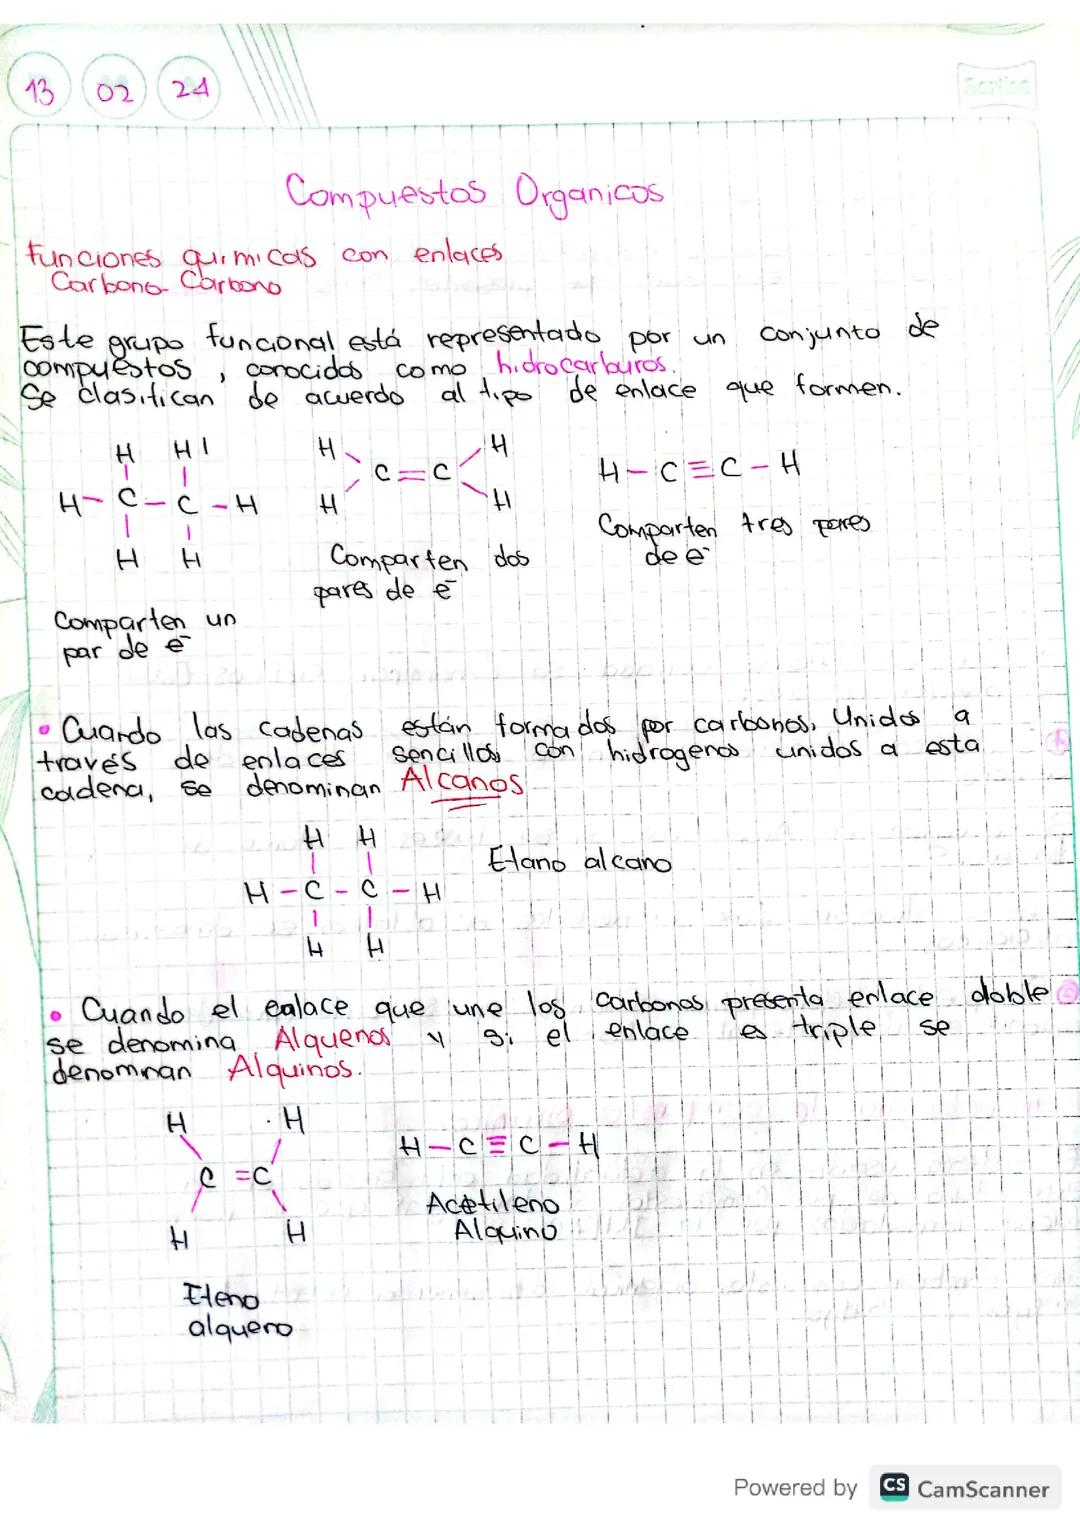 13 02 24
Scribe
Compuestos Organicos
Funciones quimicas con enlaces
Carbono-Carbono
Este grupo funcional está representado por un conjunto de
compuestos, conocidos como hidrocarburos.
Se clasifican de acuerdo al tipo de enlace que formen.
H H
H - C - C - H
H H
Comparten un
par de e-
H H
C = C
H H
Comparten dos
pares de e-
H - C ≡ C - H
Comparten tres pares
de e-
• Cuando las cadenas están formados por carbonos, Unidos a
través de enlaces sencillos con hidrogenos unidos a esta
cadena, se denominan Alcanos
H H
H - C - C - H
H H
Etano alcano
• Cuando el enlace que une los carbonos presenta enlace doble
se denomina Alquenos y si el enlace es triple se
denomnan Alquinos.
H H
C = C
H H
Eteno
alqueno
H - C ≡ C - H
Acetileno
Alquino
Powered by CS CamScanner